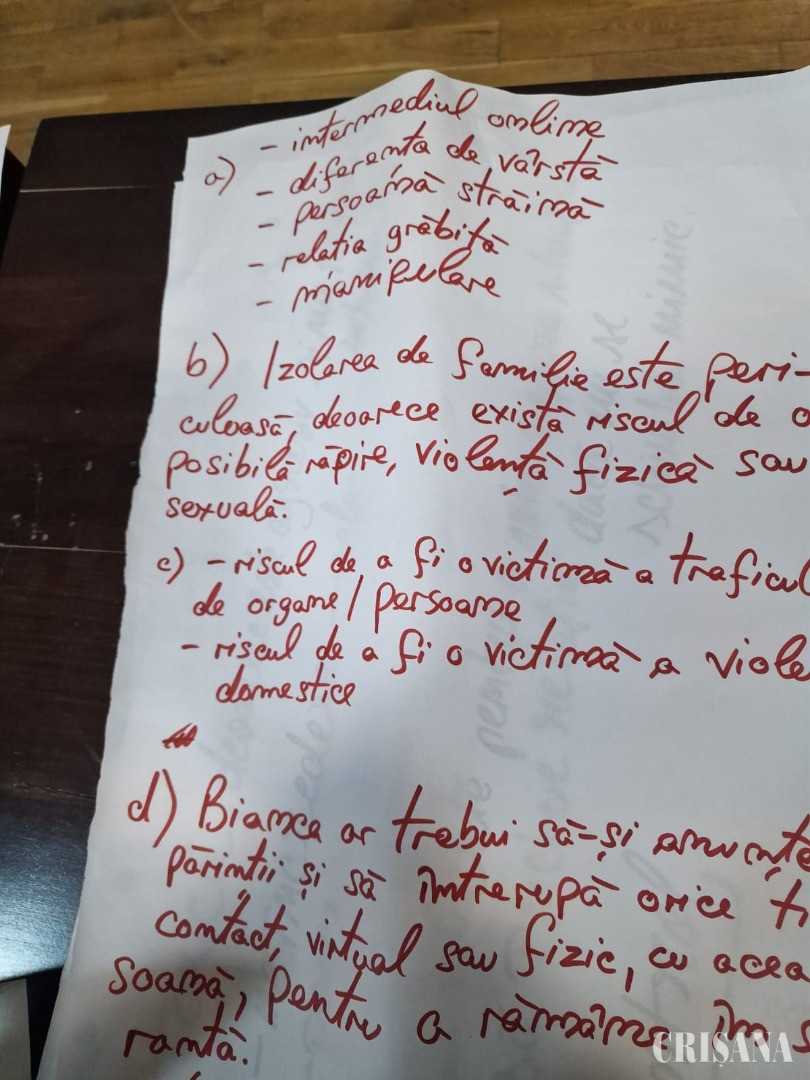 a) - intermediul online
- diferența de vârstă
- persoană străină
- relația grăbită
- manipulare
b) Izolarea de familie este peri-
culoasă, deoarece există riscul de o
posibilă răpire, violență fizică sau
sexuală.
c) - riscul de a fi o victimă a traficul
de organe / persoane
- riscul de a fi o victimă a viole
domestice
d) Bianca ar trebui să-și anunțe
părinții și să întrerupă orice ti
contact, virtual sau fizic, cu acea
soană, pentru a rămâne în s
ranță.
CRIȘANA